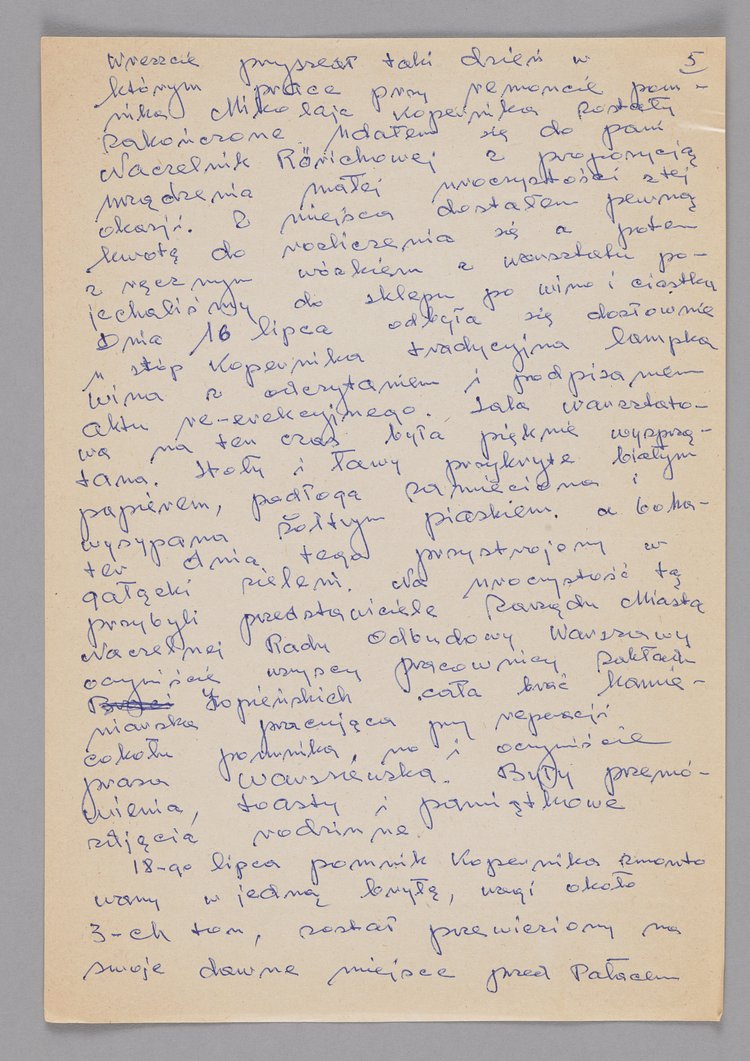 5
Wreszcie przyszedł taki dzień w
którym prace przy remoncie pom-
nika Mikołaja Kopernika zostały
zakończone. Udałem się do pani
Naczelnik Rörichowej z propozycją
urządzenia małej uroczystości z tej
okazji. Z miejsca dostałem pewną
kwotę do rozliczenia się a potem
z ręcznym wózkiem z warsztatu po-
jechaliśmy do sklepu po wino i ciastka
Dnia 16 lipca odbyła się dosłownie
u stóp Kopernika tradycyjna lampka
wina z odczytaniem i podpisaniem
aktu re-erekcyjnego. Sala warsztato-
wa na ten czas była pięknie wysprzą-
tana. Stoły i ławy przykryte białym
papierem, podłoga zamieciona i
wysypana żółtym piaskiem. a boha-
ter dnia tego przystrojony w
gałązki zieleni. Na uroczystość tą
przybyli przedstawiciele Zarządu Miasta
Naczelnej Rady Odbudowy Warszawy
oczywiście wszyscy pracownicy zakładu
Braci Łopieńskich cała brać kamie-
niarska pracująca przy reperacji
cokołu pomnika, no i oczywiście
prasa Warszawska. Były przemó-
wienia, toasty i pamiątkowe
zdjęcia rodzinne.
18-go lipca pomnik Kopernika zmonto
wany w jedną bryłę, wagi około
3-ch ton, został przewieziony na
swoje dawne miejsce przed Pałacem